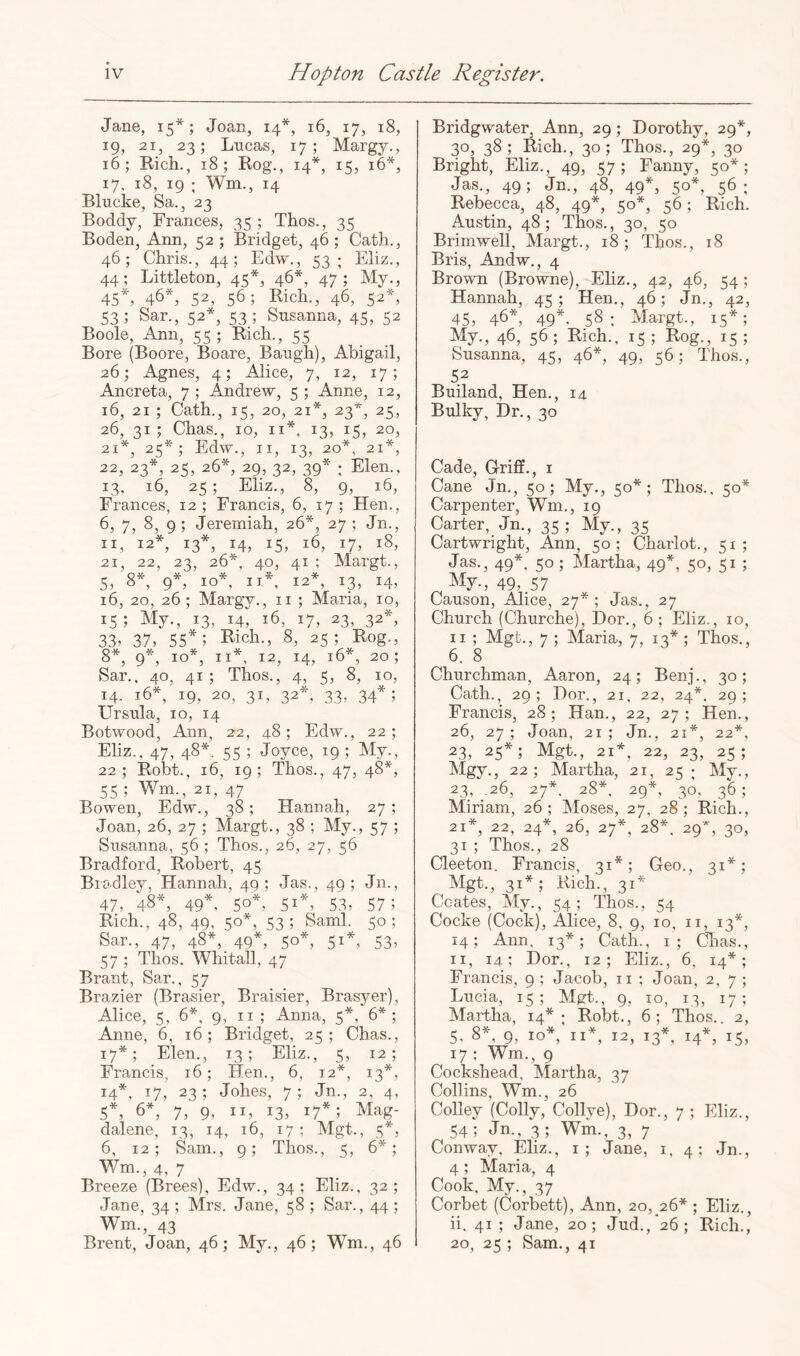 iv Hopton Castle Register.
Jane, 15*; Joan, 14*, 16, 17, 18,
19, 21, 23; Lucas, 17; Margy.,
16; Rich., 18; Rog., 14*, 15, 16*,
17, 18, 19; Wm., 14
Blucke, Sa., 23
Boddy, Frances, 35; Thos., 35
Boden, Ann, 52; Bridget, 46; Cath.,
46; Chris., 44; Edw., 53; Eliz.,
44; Littleton, 45*, 46*, 47; My.,
45*, 46*, 52, 56; Rich., 46, 52*,
53; Sar., 52*, 53; Susanna, 45, 52
Boole, Ann, 55; Rich., 55
Bore (Boore, Boare, Baugh), Abigail,
26; Agnes, 4; Alice, 7, 12, 17;
Ancreta, 7; Andrew, 5; Anne, 12,
16, 21; Cath., 15, 20, 21*, 23*, 25,
26, 31; Chas., 10, 11*, 13, 15, 20,
21*, 25*; Edw., 11, 13, 20*, 21*,
22, 23*, 25, 26*, 29, 32, 39*; Elen.,
13, 16, 25; Eliz., 8, 9, 16,
Frances, 12; Francis, 6, 17; Hen.,
6, 7, 8, 9; Jeremiah, 26*, 27; Jn.,
11, 12*, 13*, 14, 15, 16, 17, 18,
21, 22, 23, 26*, 40, 41; Margt.,
5, 8*, 9*, 10*, 11*, 12*, 13, 14,
16, 20, 26; Margy., 11; Maria, 10,
15; My., 13, 14, 16, 17, 23, 32*,
33, 37, 55*; Rich., 8, 25; Rog.,
8*, 9*, 10*, 11*, 12, 14, 16*, 20;
Sar., 40, 41; Thos., 4, 5, 8, 10,
14, 16*, 19, 20, 31, 32*, 33, 34*;
Ursula, 10, 14
Botwood, Ann, 22, 48; Edw., 22;
Eliz., 47, 48*, 55; Joyce, 19; My.,
22; Robt., 16, 19; Thos., 47, 48*,
55; Wm., 21, 47
Bowen, Edw., 38; Hannah, 27;
Joan, 26, 27; Margt., 38; My., 57;
Susanna, 56; Thos., 26, 27, 56
Bradford, Robert, 45
Bradley, Hannah, 49; Jas., 49; Jn.,
47, 48*, 49*, 50*, 51*, 53, 57;
Rich., 48, 49, 50*, 53; Saml. 50;
Sar., 47, 48*, 49*, 50*, 51*, 53,
57; Thos. Whitall, 47
Brant, Sar., 57
Brazier (Brasier, Braisier, Brasyer),
Alice, 5, 6*, 9, 11; Anna, 5*, 6*;
Anne, 6, 16; Bridget, 25; Chas.,
17*; Elen., 13; Eliz., 5, 12;
Francis, 16; Hen., 6, 12*, 13*,
14*, 17, 23; Johes, 7; Jn., 2, 4,
5*, 6*, 7, 9, 11, 13, 17*; Mag-
dalene, 13, 14, 16, 17; Mgt., 5*,
6, 12; Sam., 9; Thos., 5, 6*;
Wm., 4, 7
Breeze (Brees), Edw., 34; Eliz., 32;
Jane, 34; Mrs. Jane, 58; Sar., 44;
Wm., 43
Brent, Joan, 46; My., 46; Wm., 46
Bridgwater, Ann, 29; Dorothy, 29*,
30, 38; Rich., 30; Thos., 29*, 30
Bright, Eliz., 49, 57; Fanny, 50*;
Jas., 49; Jn., 48, 49*, 50*, 56;
Rebecca, 48, 49*, 50*, 56; Rich.
Austin, 48; Thos., 30, 50
Brimwell, Margt., 18; Thos., 18
Bris, Andw., 4
Brown (Browne), Eliz., 42, 46, 54;
Hannah, 45; Hen., 46; Jn., 42,
45, 46*, 49*, 58; Margt., 15*;
My., 46, 56; Rich., 15; Rog., 15;
Susanna, 45, 46*, 49, 56; Thos.,
52
Builand, Hen., 14
Bulky, Dr., 30
Cade, Griff., 1
Cane Jn., 50; My., 50*; Thos., 50*
Carpenter, Wm., 19
Carter, Jn., 35; My., 35
Cartwright, Ann, 50; Charlot., 51;
Jas., 49*, 50; Martha, 49*, 50, 51;
My., 49, 57
Causon, Alice, 27*; Jas., 27
Church (Churche), Dor., 6; Eliz., 10,
11; Mgt., 7; Maria, 7, 13*; Thos.,
6, 8
Churchman, Aaron, 24; Benj., 30;
Cath., 29; Dor., 21, 22, 24*, 29;
Francis, 28; Han., 22, 27; Hen.,
26, 27; Joan, 21; Jn., 21*, 22*,
23, 25*; Mgt., 21*, 22, 23, 25;
Mgy., 22; Martha, 21, 25; My.,
23, 26, 27*, 28*, 29*, 30, 36;
Miriam, 26; Moses, 27, 28; Rich.,
21*, 22, 24*, 26, 27*, 28*, 29*, 30,
31; Thos., 28
Cleeton, Francis, 31*; Geo., 31*;
Mgt., 31*; Rich., 31*
Coates, My., 54; Thos., 54
Cocke (Cock), Alice, 8, 9, 10, 11, 13*,
14; Ann, 13*; Cath., 1; Chas.,
11, 14; Dor., 12; Eliz., 6, 14*;
Francis, 9; Jacob, 11; Joan, 2, 7;
Lucia, 15; Mgt., 9, 10, 13, 17;
Martha, 14*; Robt., 6; Thos., 2,
5, 8*, 9, 10*, 11*, 12, 13*, 14*, 15,
17; Wm., 9
Cockshead, Martha, 37
Collins, Wm., 26
Colley (Colly, Collye), Dor., 7; Eliz.,
54; Jn., 3; Wm., 3, 7
Conway, Eliz., 1; Jane, 1, 4; Jn.,
4; Maria, 4
Cook, My., 37
Corbet (Corbett), Ann, 20, 26*; Eliz.,
ii, 41; Jane, 20; Jud., 26; Rich.,
20, 25; Sam., 41